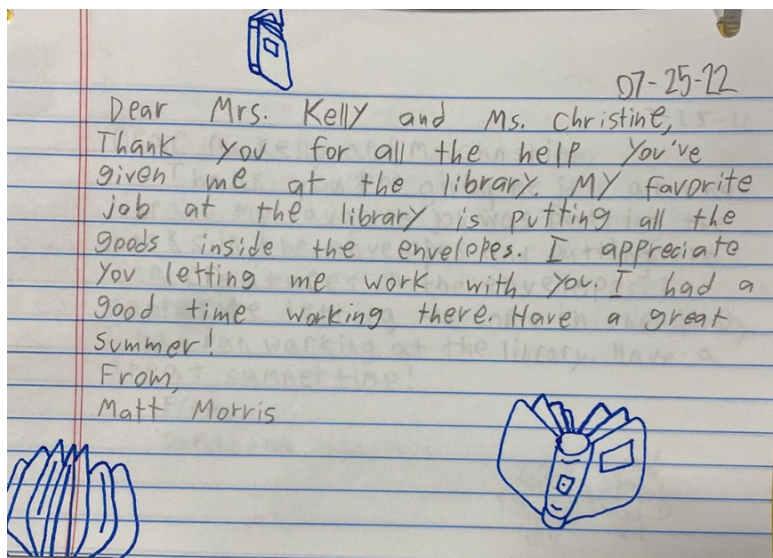 07-25-22
Dear Mrs. Kelly and Ms. Christine,
Thank you for all the help you've
given me at the library. My favorite
job at the library is putting all the
goods inside the envelopes. I appreciate
you letting me work with you. I had a
good time working there. Have a great
summer!
From,
Matt Morris